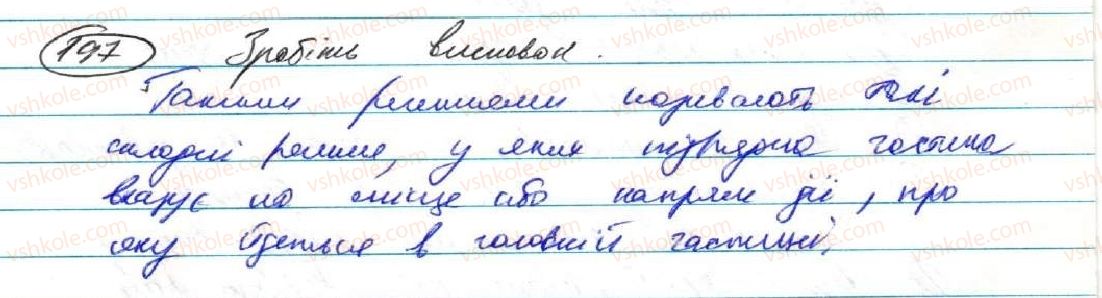 197 Зробіть висновок.
Такими реченнями називають такі
складні речення, у яких підрядна частина
вказує на місце або напрям дії, про
яку йдеться в головній частині.